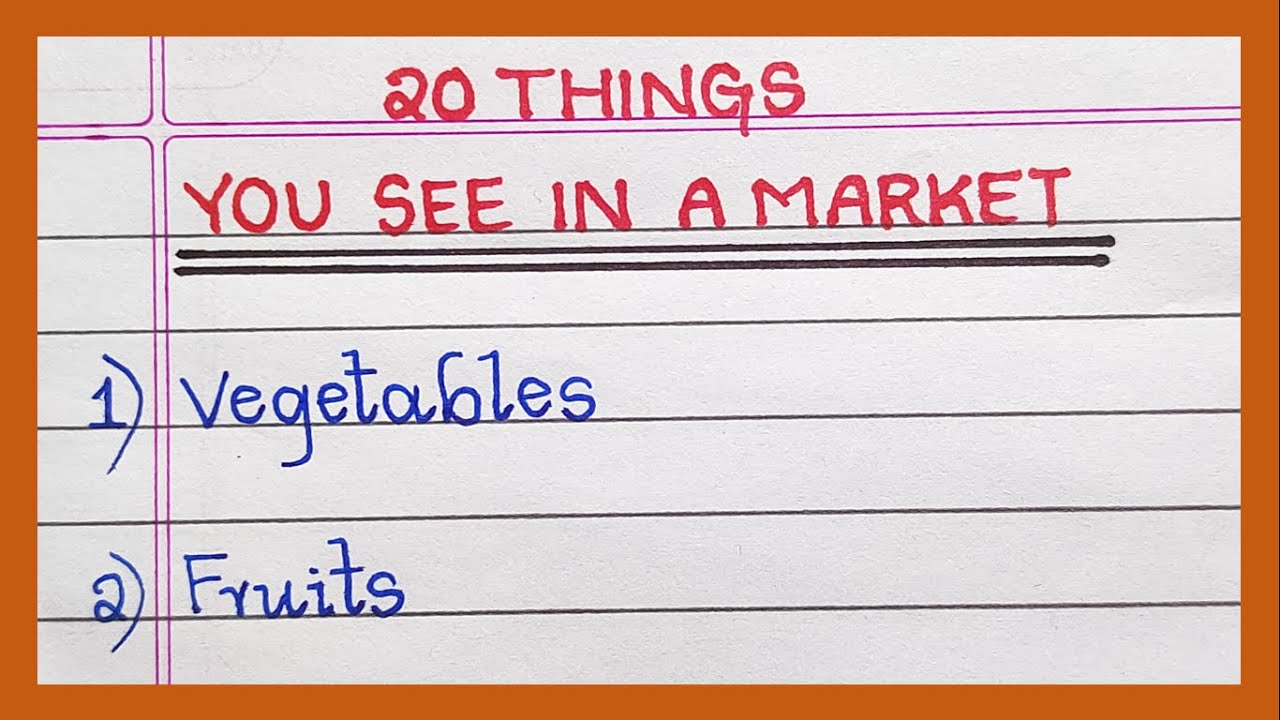 20 THINGS
YOU SEE IN A MARKET
1) Vegetables
2) Fruits